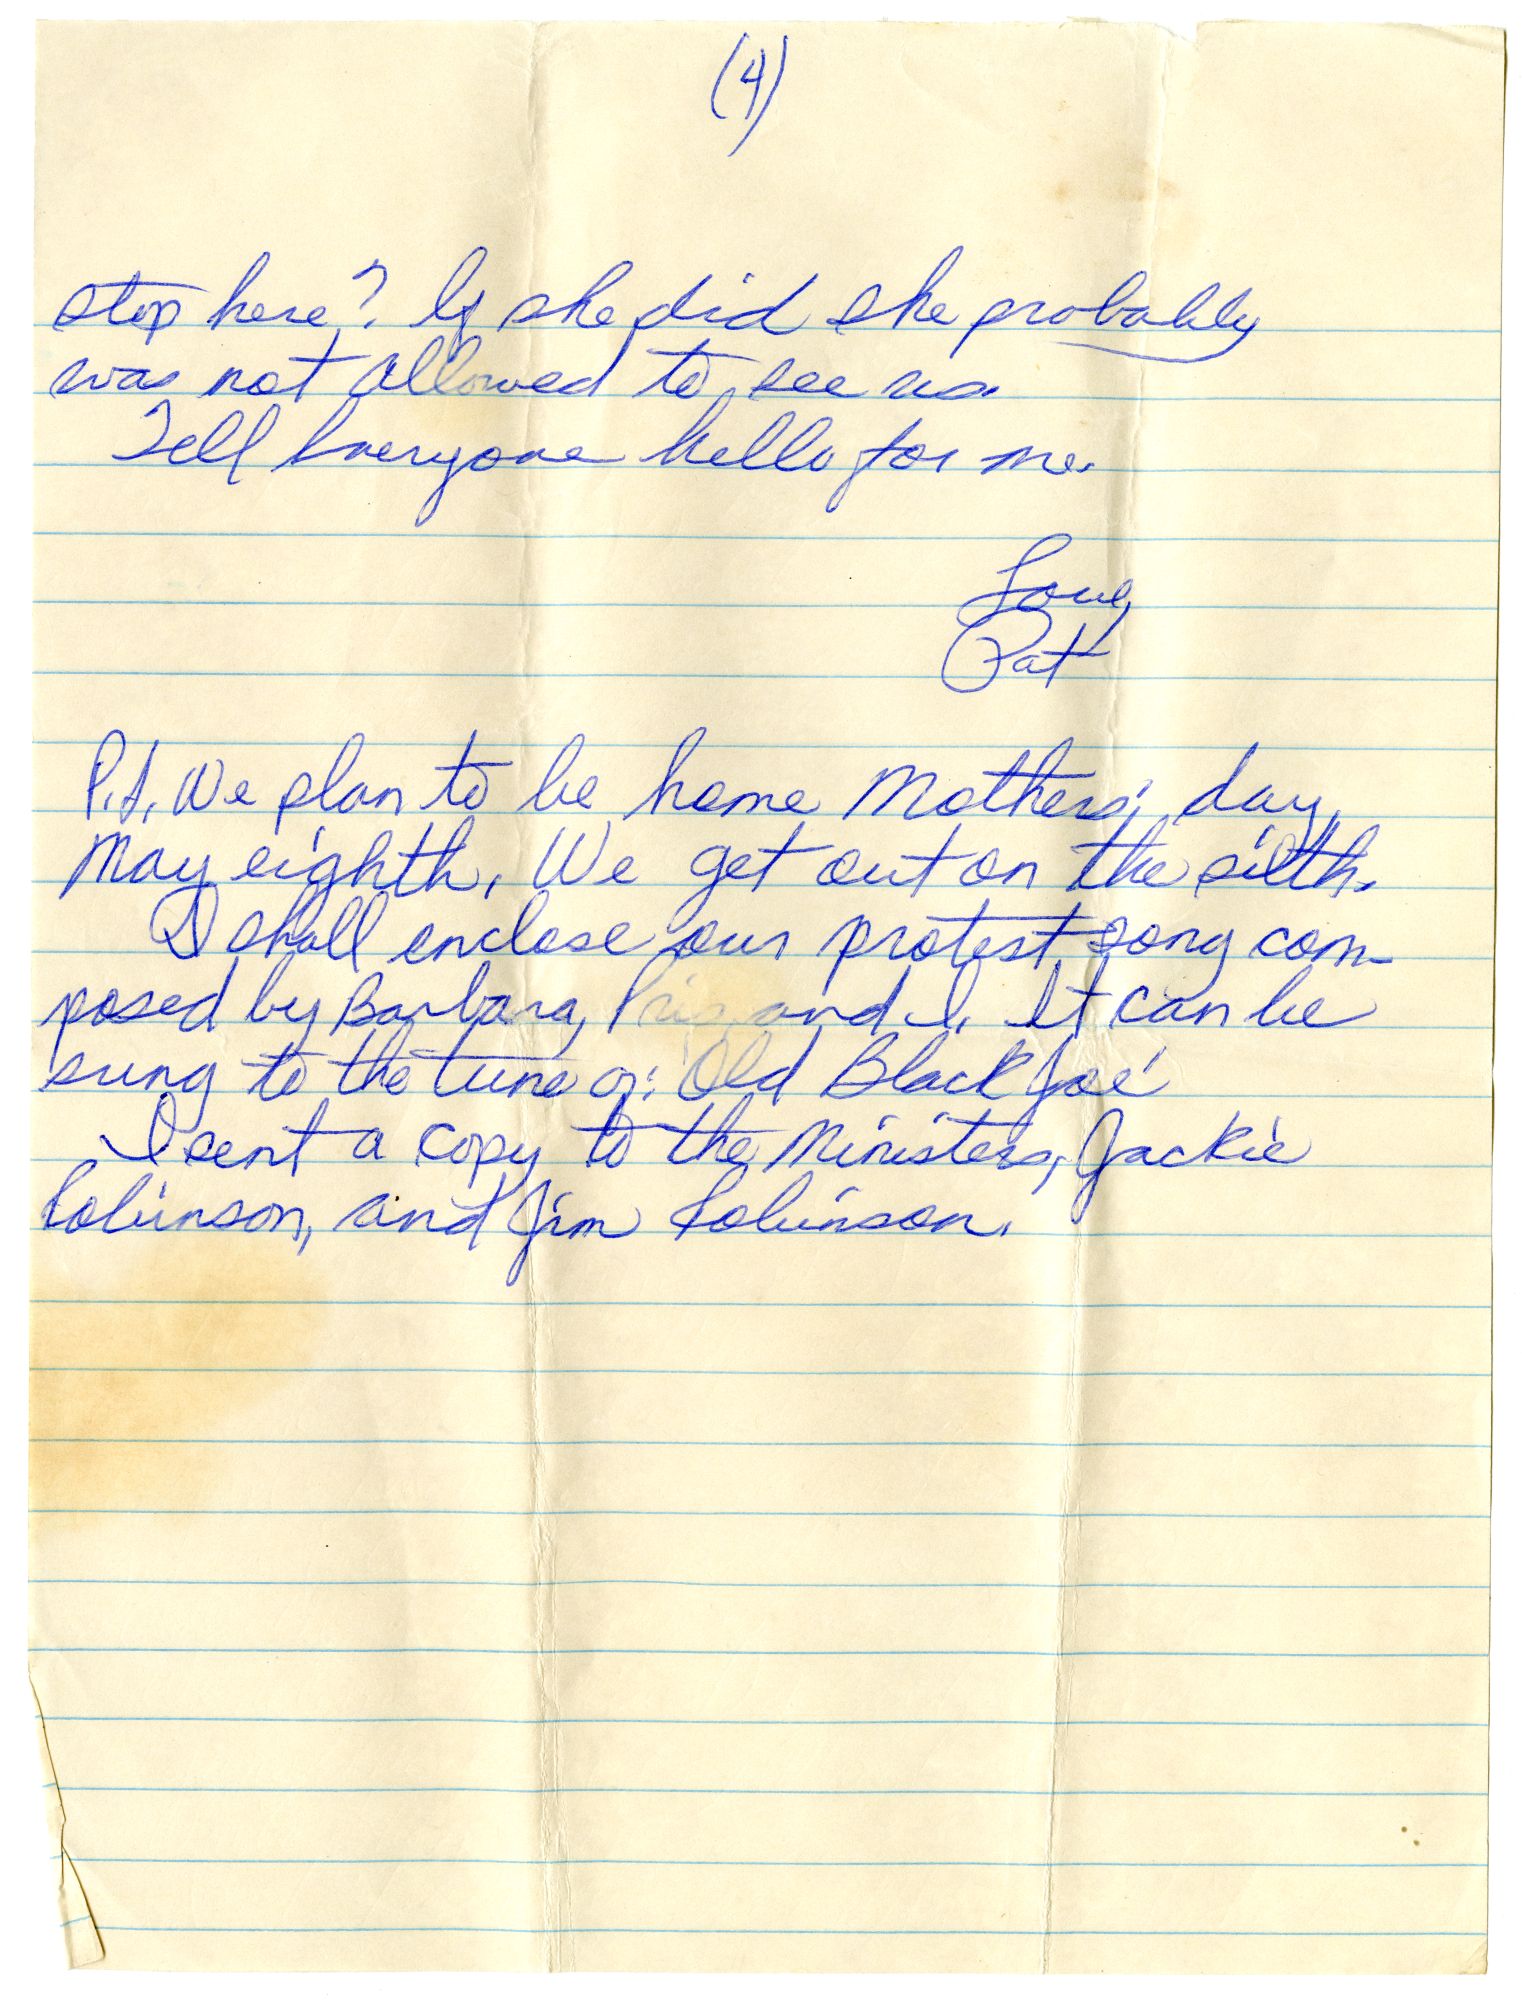 (4)
stop here? If she did she probably
was not allowed to see us.
Tell Everyone hello for me.
Love,
Pat
P.S. We plan to be home Mothers' day,
May eighth. We get out on the
I shall enclose our protest song com-
posed by Barbara, Pris, and I. It can be
sung to the tune of: 'Old Black Joe'
I sent a copy to the Ministers, Jackie
Robinson, and Jim Robinson.